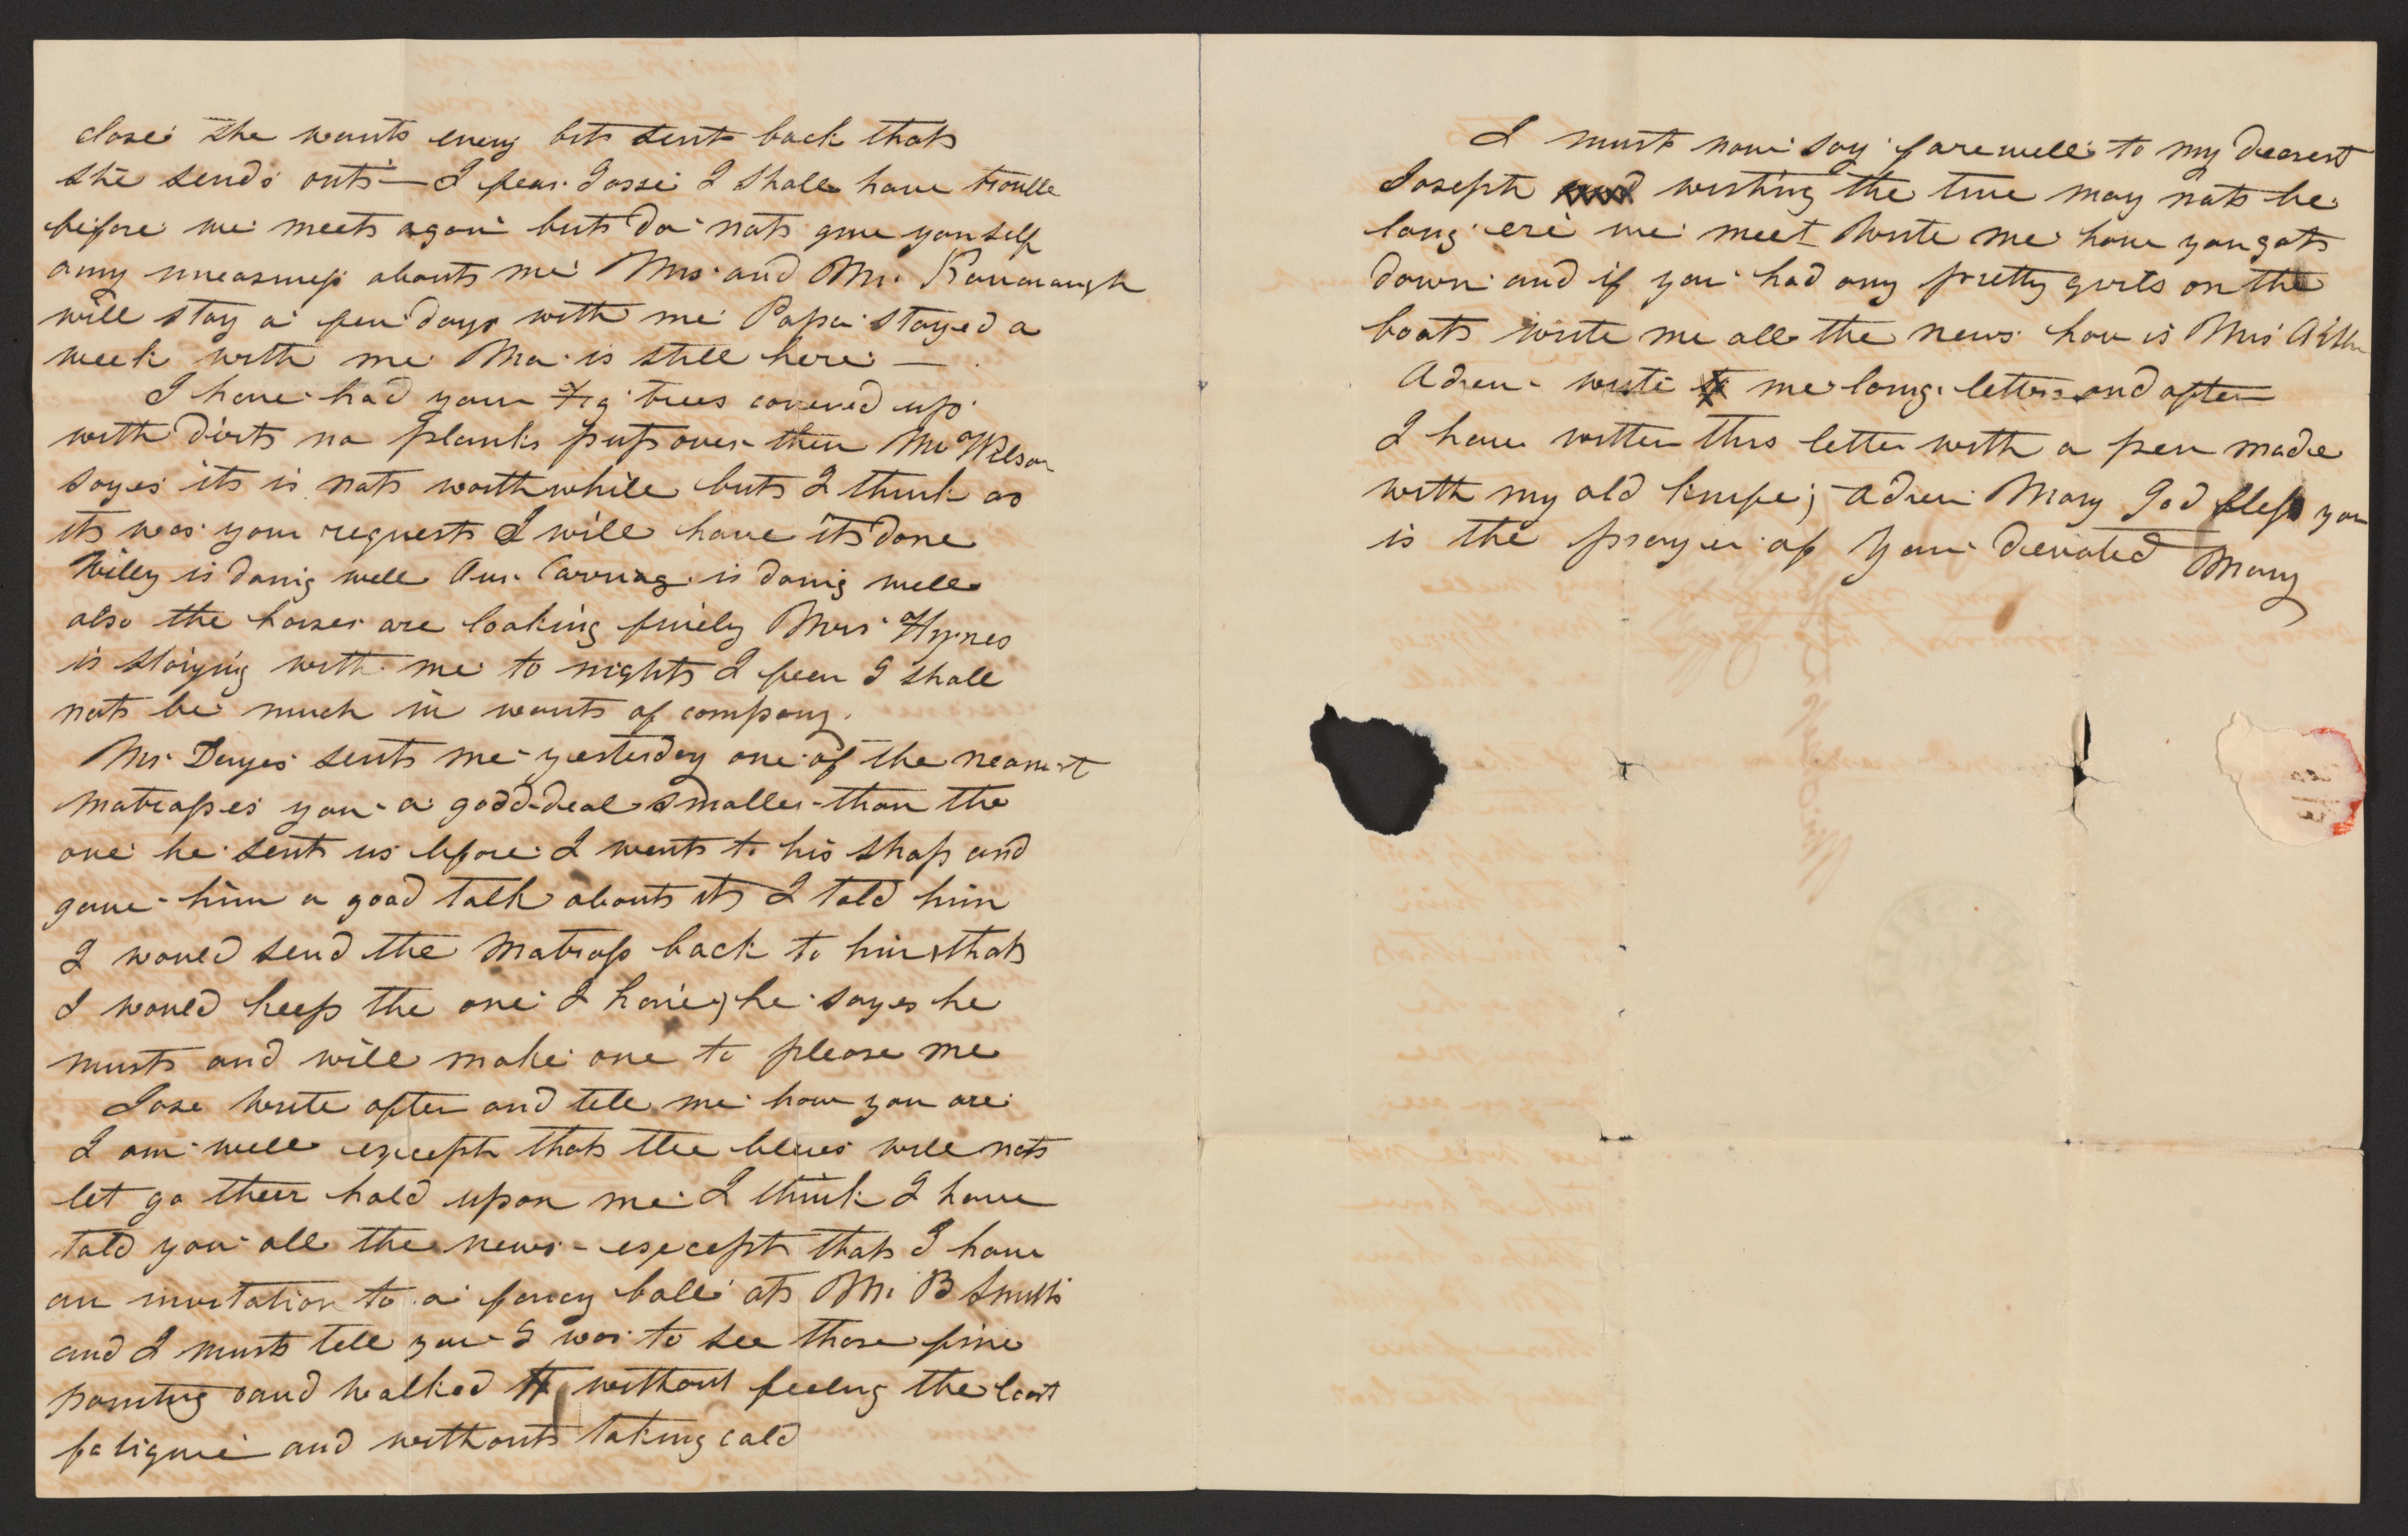 close she wants every bit sent back that
she sends out — I fear Josse I shall have trouble
before we meet again but do not give yourself
any uneasiness about me Mrs and Mr. Kavanaugh
will stay a few days with me Papa stayed a
week with me Ma is still here —
I have had your Fig trees covered up
with dirt no planks put over them Mr Wilson
sayes it is not worth while but I think as
it was your request I will have it done
Willy is doing well Our Carriag is doing well
also the horses are looking finely Mrs Hynes
is staying with me to night I fear I shall
not be much in want of company.
Mr. Deyes sent me yesterday one of the
matrasses you a good deal smaller than the
one he sent us before I went to his shop and
gave him a good talk about it I told him
I would send the matrass back to him & that
I would keep the one I have, he sayes he
must and will make one to please me
Jose write often and tell me how you are
I am well except that the blues will not
let go their hold upon me I think I have
told you all the news - except that I have
an invitation to a fancy ball at Mr B Smiths
and I must tell you I was to see those fine
painting and walked without feeling the least
fatigue and without taking cold
I must now say farewell to my dearest
Joseph wishing the time may not be
long ere we meet Write me how you got
down and if you had any pretty girls on the
boat write me all the news how is Mrs
Adieu - write me long letters and often
I have written this letter with a pen made
with my old knife; Adieu Mary God bless you
is the prayer of your devoted Mary